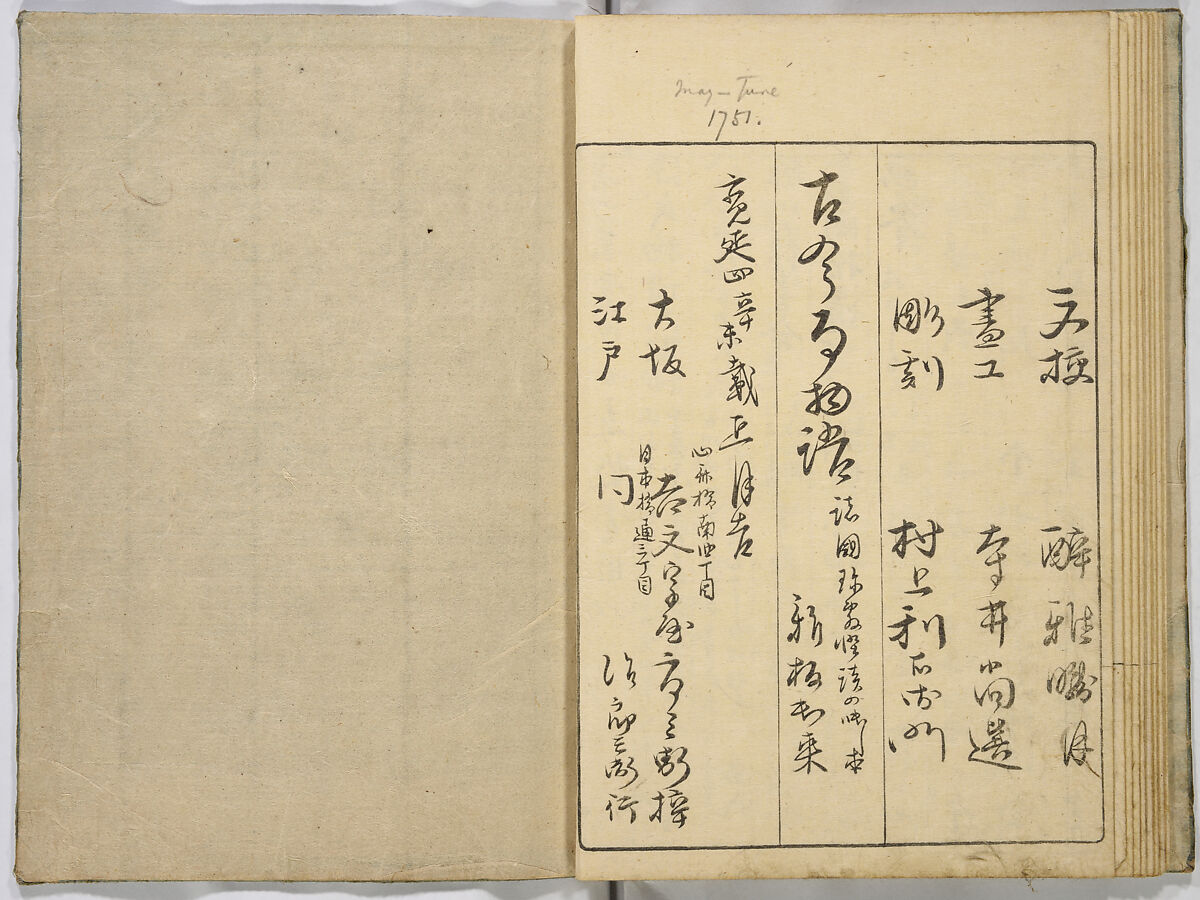 May – June
1751.
文挍 醉雅
畫工 寺井尚選
彫刻 村上利右衛門
古今百物語 諸國珍敷怪談の 本
新板出来
寛延四辛未歳五月吉
大坂 心斎橋南四丁目 吉文字屋市兵衛梓
江戸 日本橋通三丁目 同 治郎兵衛行